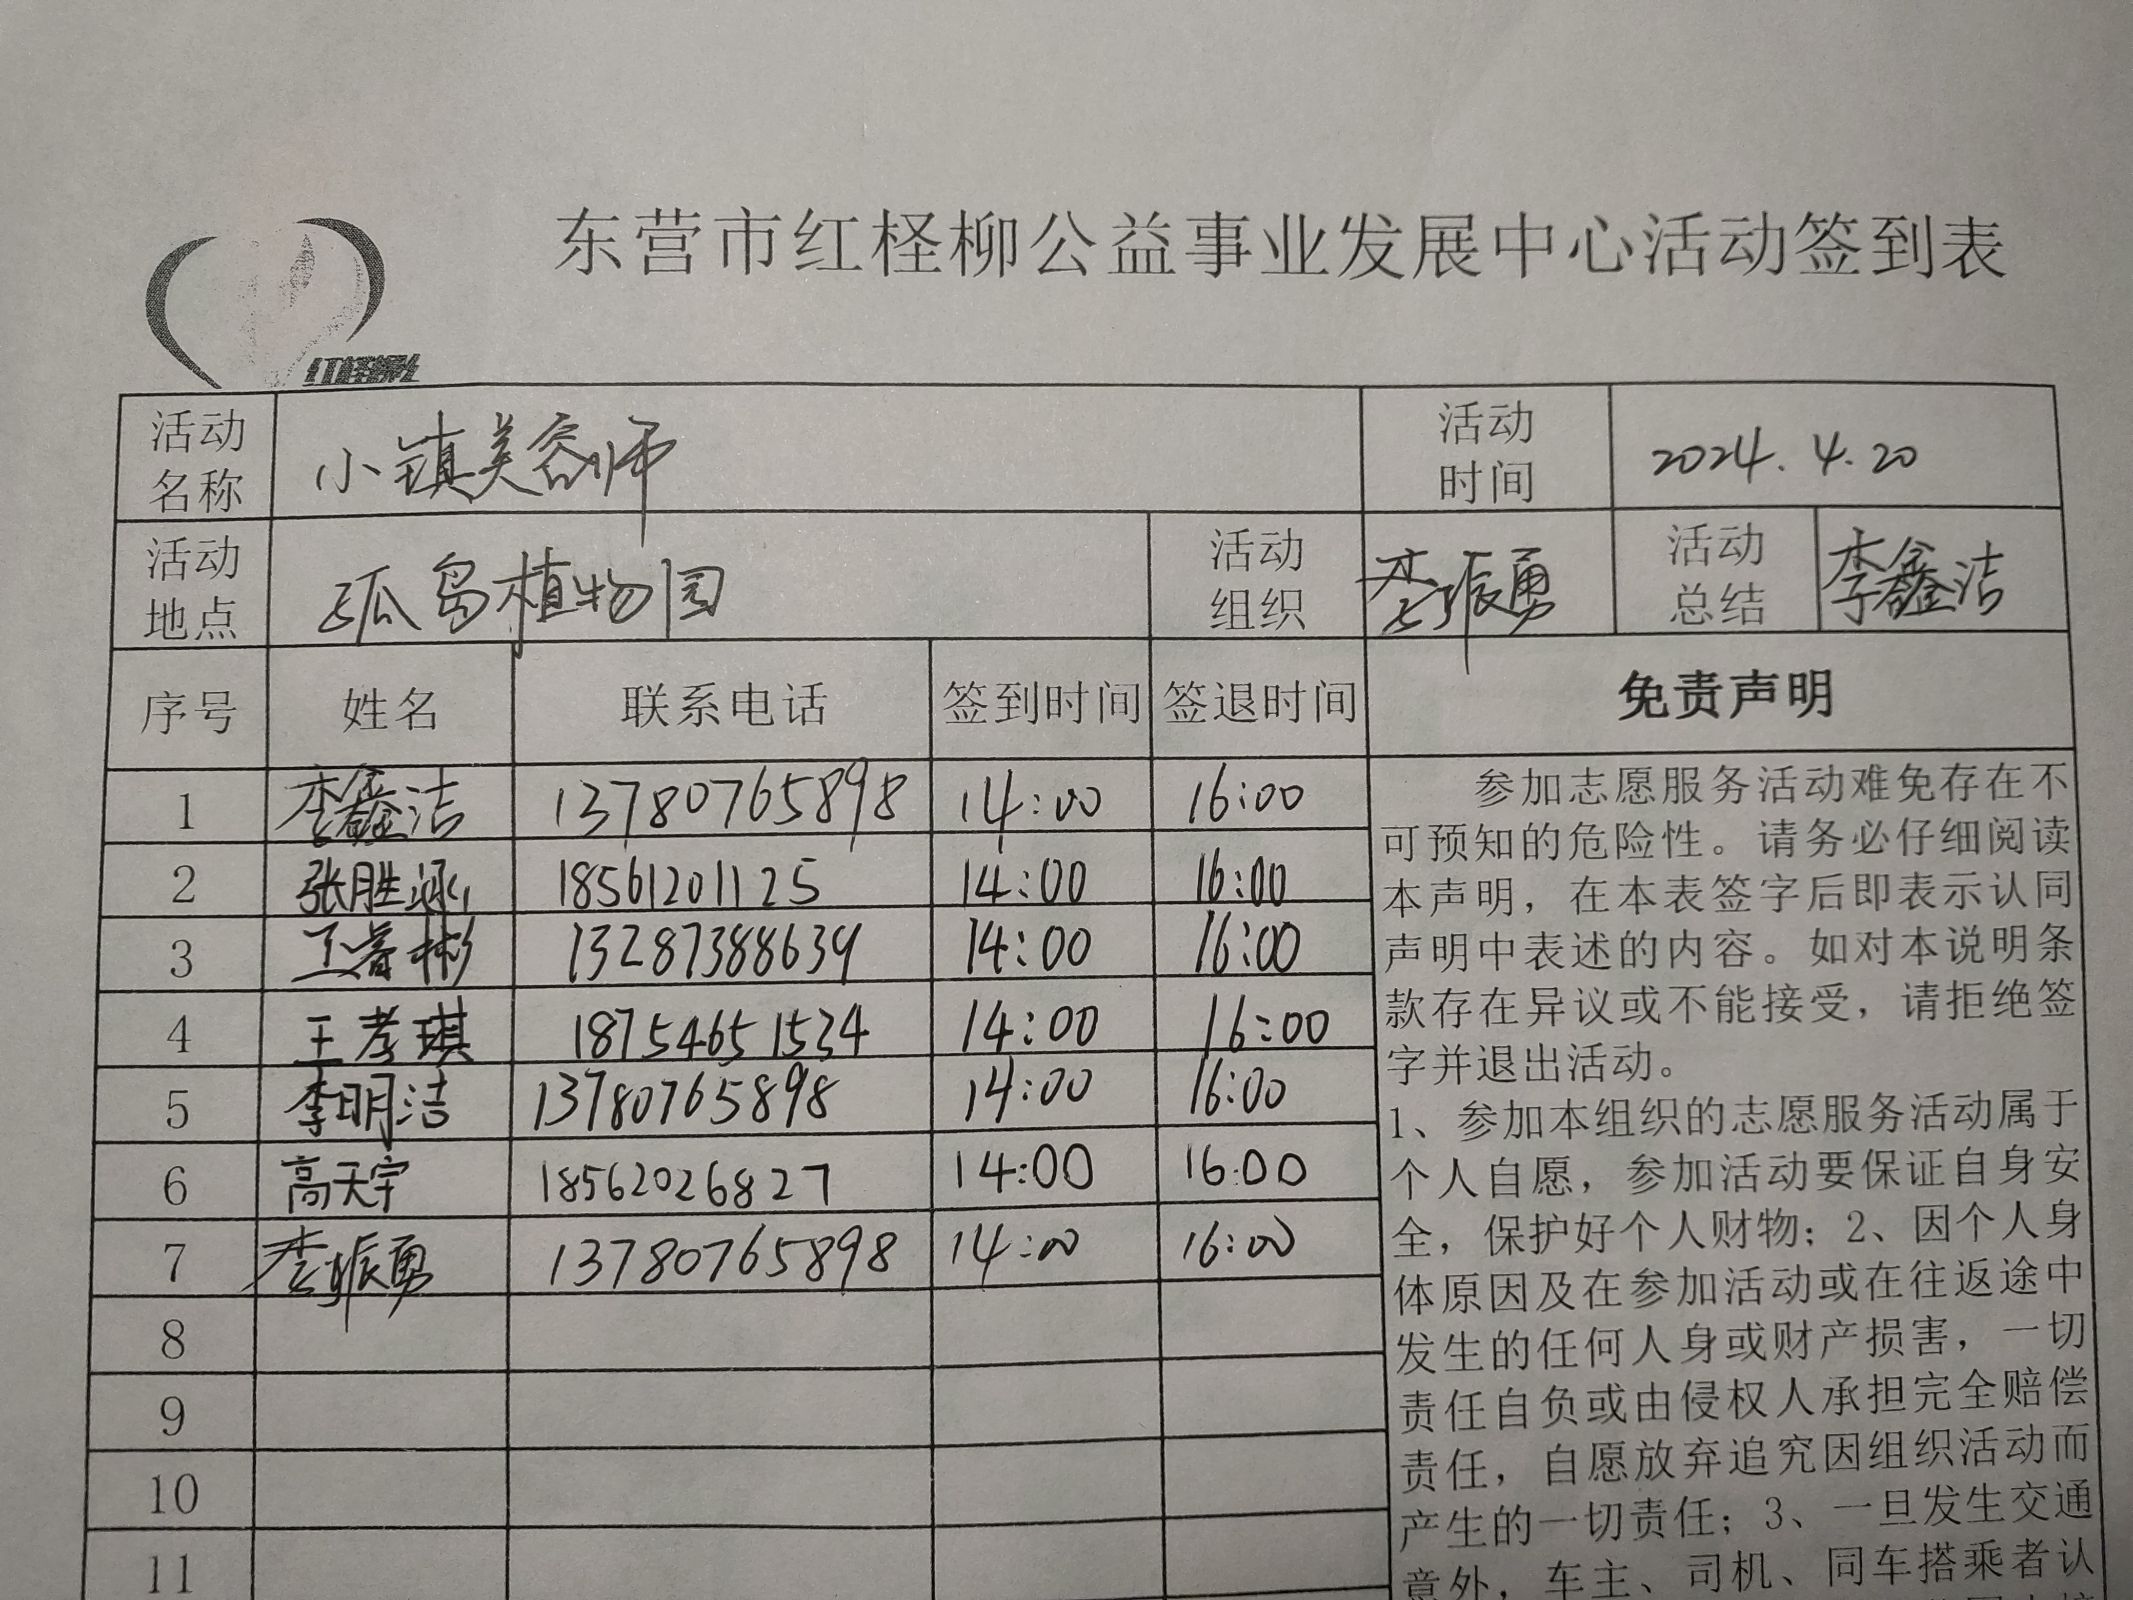 东营市红柽柳公益事业发展中心活动签到表
红柽柳
活动名称 小镇美容师 活动时间 2024.4.20
活动地点 孤岛植物园 活动组织 李振勇 活动总结 李鑫洁
序号 姓名 联系电话 签到时间 签退时间 免责声明
1 李鑫洁 13780765898 14:00 16:00
2 张胜泳 18561201125 14:00 16:00
3 王睿彬 13287388639 14:00 16:00
4 王孝琪 18754651534 14:00 16:00
5 李明洁 13780765898 14:00 16:00
6 高天宇 18562026827 14:00 16:00
7 李振勇 13780765898 14:00 16:00
8
9
10
11
参加志愿服务活动难免存在不
可预知的危险性。请务必仔细阅读
本声明，在本表签字后即表示认同
声明中表述的内容。如对本说明条
款存在异议或不能接受，请拒绝签
字并退出活动。
1、参加本组织的志愿服务活动属于
个人自愿，参加活动要保证自身安
全，保护好个人财物；2、因个人身
体原因及在参加活动或在往返途中
发生的任何人身或财产损害，一切
责任自负或由侵权人承担完全赔偿
责任，自愿放弃追究因组织活动而
产生的一切责任；3、一旦发生交通
意外，车主、司机、同车搭乘者认